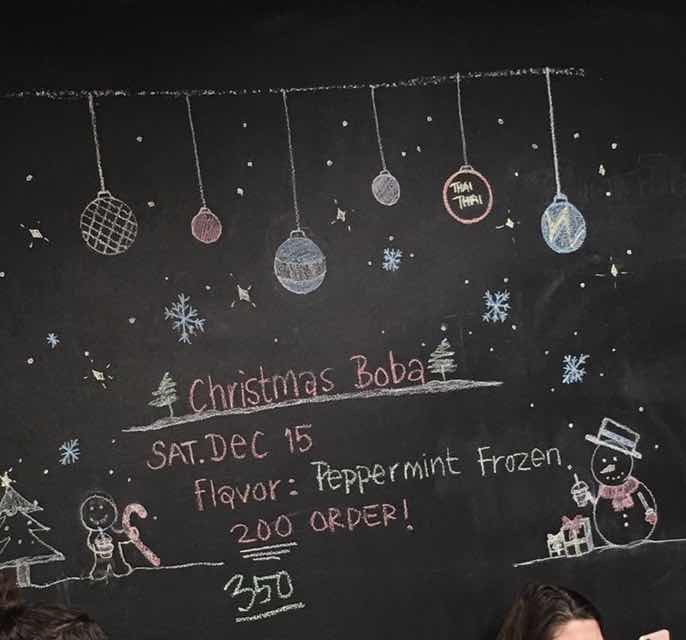 THAI
THAI
Christmas Boba
SAT. DEC 15
Flavor: Peppermint Frozen
200 ORDER!
350